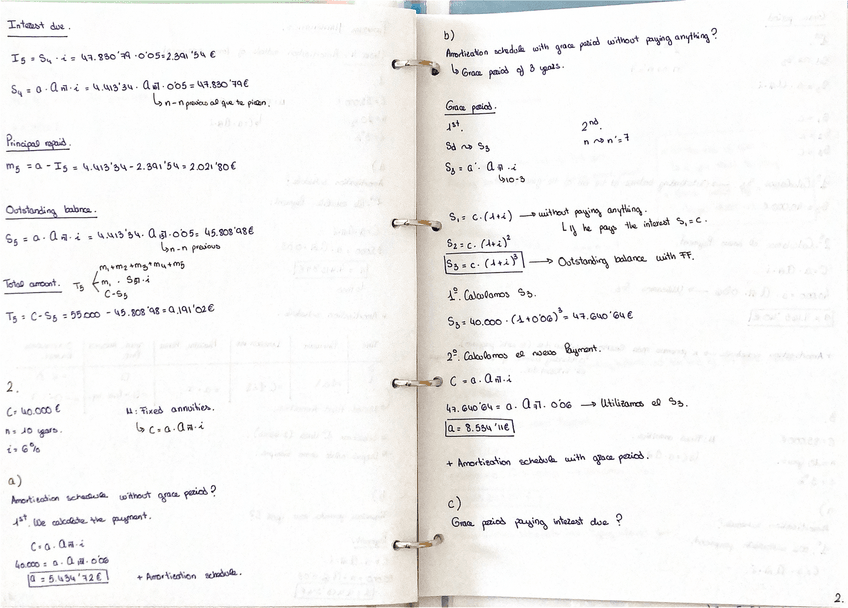 Interest due.
I5 = S4 · i = 47.830'79 · 0'05 = 2.391'54 €
S4 = a · a n̅ · i = 4.413'34 · a n̅ 0'05 = 47.830'79 €
↳ n-n previos al que te piden.
Principal repaid.
m5 = a - I5 = 4.413'34 - 2.391'54 = 2.021'80 €
Outstanding balance.
S5 = a · a n̅ · i = 4.413'34 · a n̅ · 0'05 = 45.808'98 €
↳ n-n previous
m1+m2+m3+m4+m5
Total amount. T5 m1 · S5̅ · i
C-S5
T5 = C - S5 = 55.000 - 45.808'98 = 9.191'02 €
2.
C = 40.000 € M: Fixed annuities.
n = 10 years. ↳ C = a · a n̅ · i
i = 6%
a)
Amortization schedule without grace period?
1st. We calculate the payment.
C = a · a n̅ · i
40.000 = a · a n̅ · 0'06
a = 5.434'72 € + Amortization schedule.
b)
Amortization schedule with grace period without paying anything?
↳ Grace period of 3 years.
Grace period.
1st. 2nd.
Sd ~> S3 n ~> n' = 7
S3 = a' · a n̅ · i
↳ 10-3
S1 = c · (1+i) → without paying anything.
↳ If he pays the interest S1 = c.
S2 = c · (1+i)²
S3 = c · (1+i)³ → Outstanding balance with FF.
1º. Calculamos S3.
S3 = 40.000 · (1+0'06)³ = 47.640'64 €
2º. Calculamos el nuevo Payment.
C = a · a n̅ · i
47.640'64 = a · a n̅ · 0'06 → Utilizamos el S3.
a = 8.534'11 €
+ Amortization schedule with grace period.
c)
Grace period paying interest due?
2.